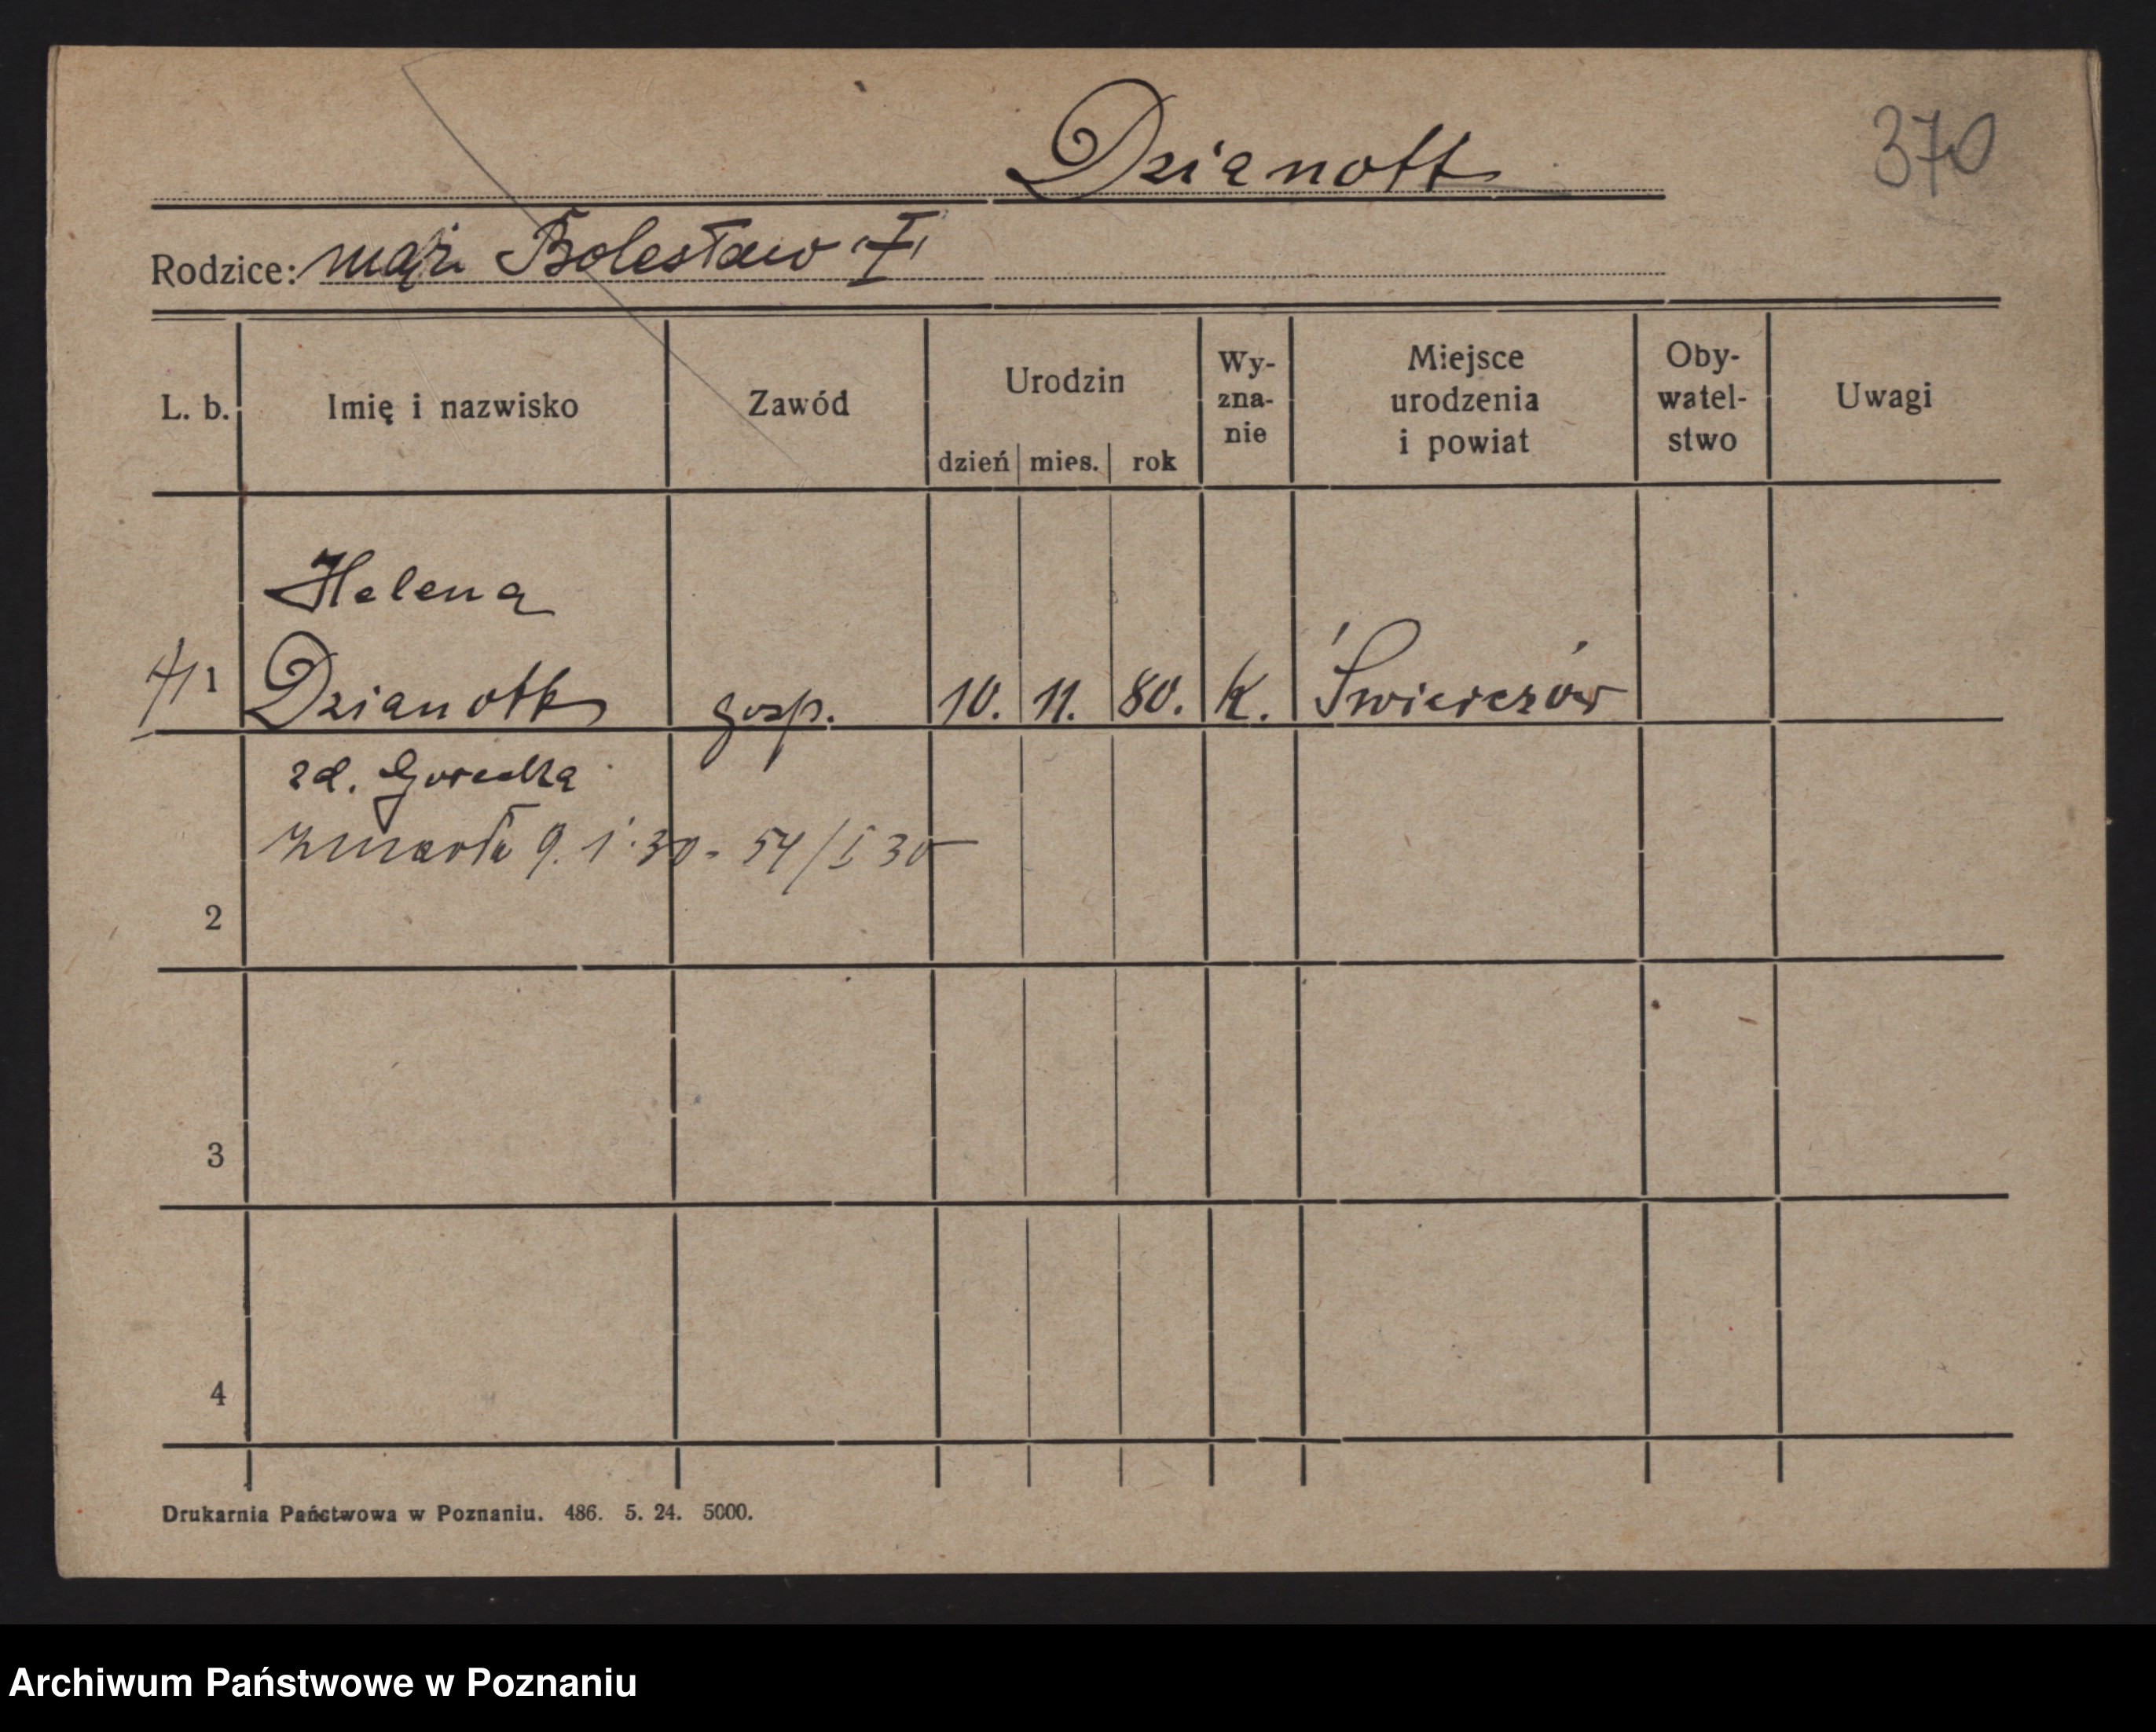 Dzianott
370
Rodzice: mąż Bolesław †
L. b. Imię i nazwisko Zawód Urodzin dzień mies. rok Wy-zna-nie Miejsce urodzenia i powiat Oby-watel-stwo Uwagi
Helena
† 1 Dzianott gosp. 10. 11. 80. k. Świerczów
zd. Gorecka
zmarła 9. 1. 30 - 54/I 30
2
3
4
Drukarnia Państwowa w Poznaniu. 486. 5. 24. 5000.
Archiwum Państwowe w Poznaniu